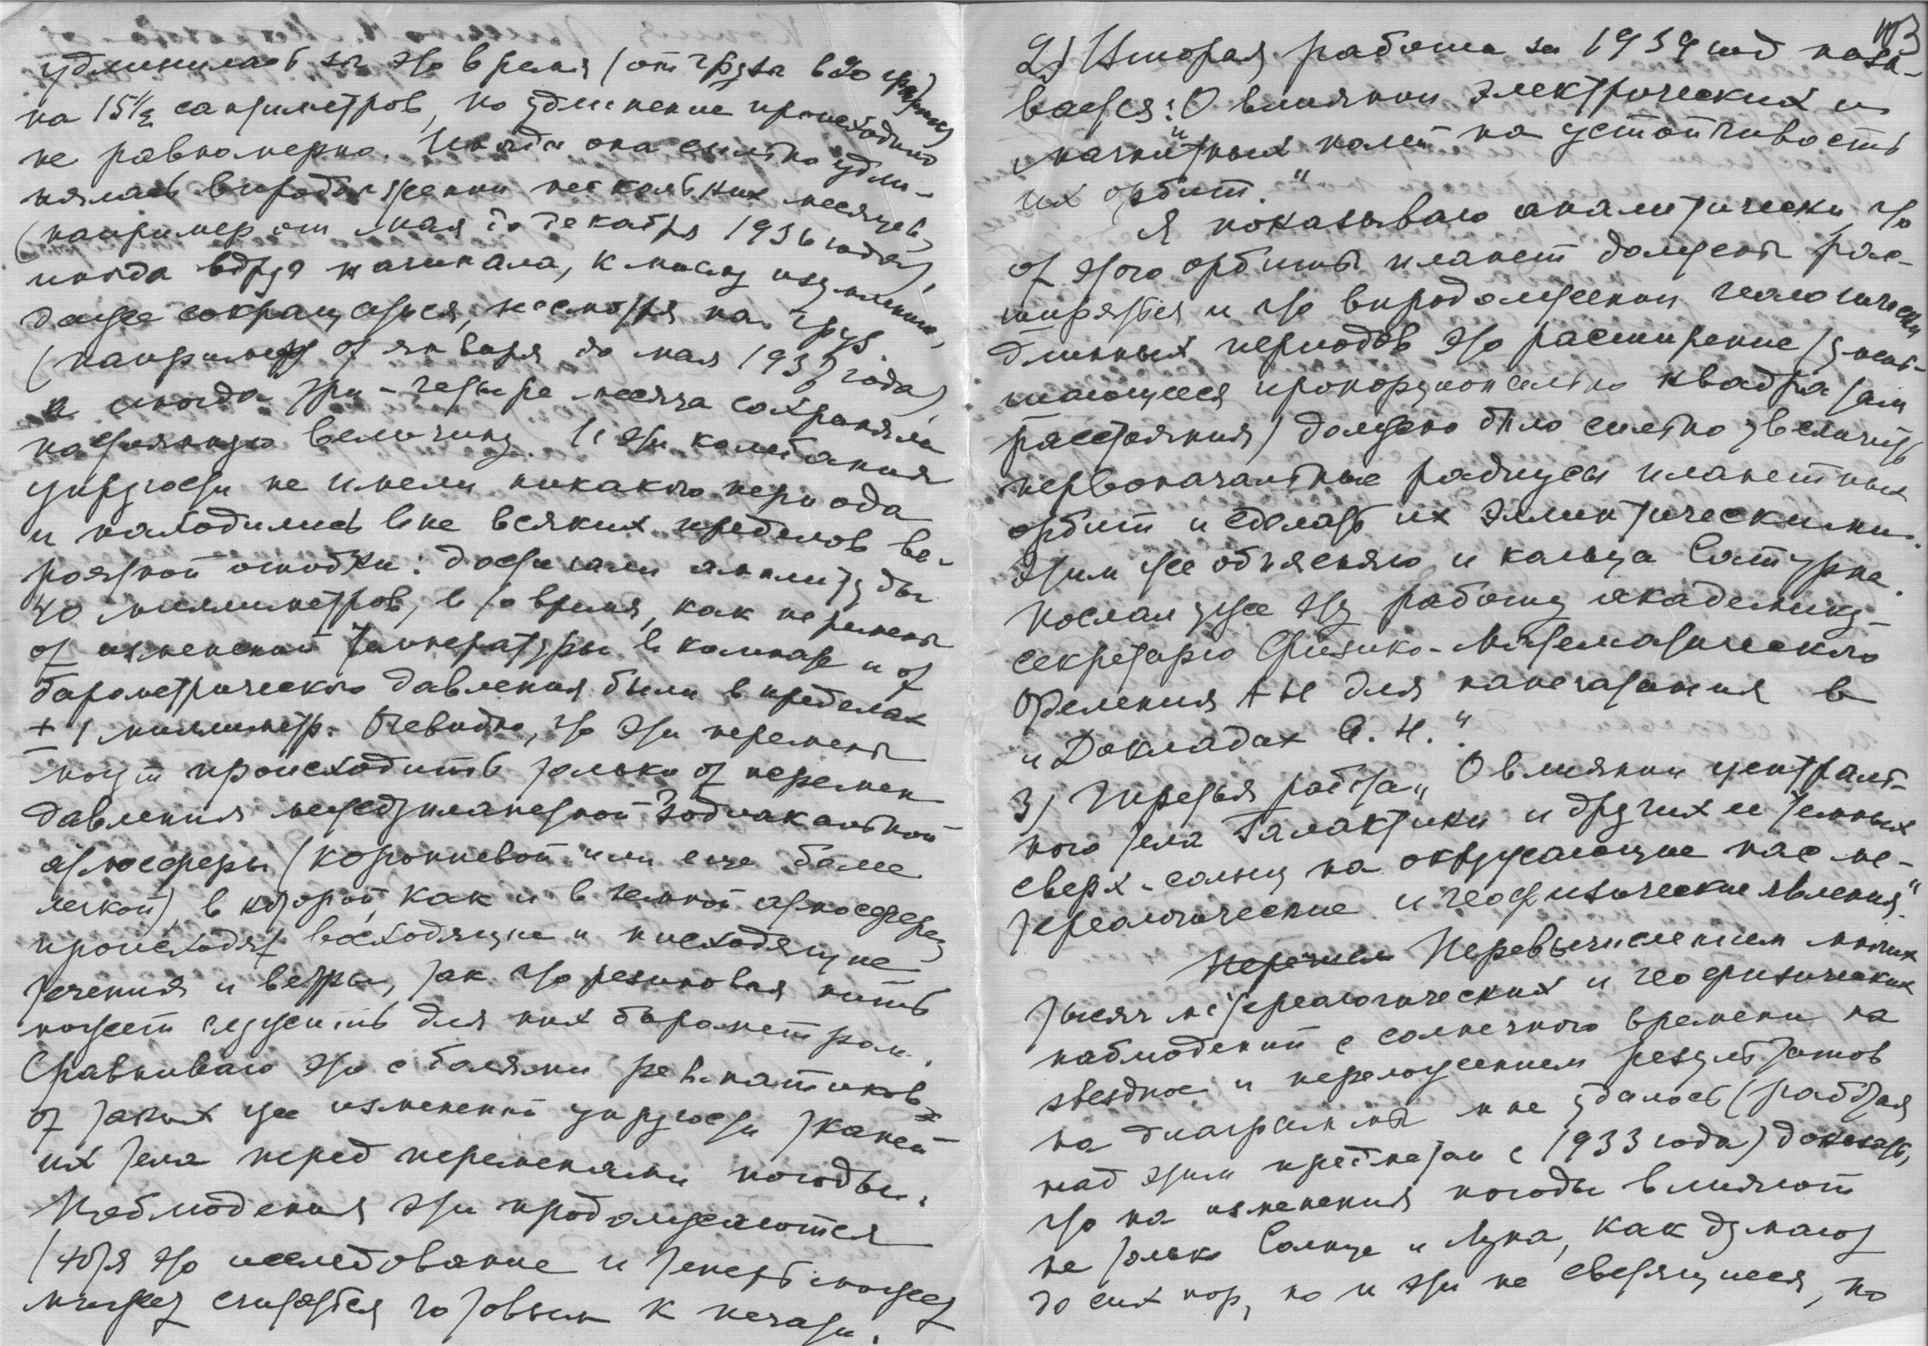 удлинилась за это время (от груза в 20 грамм)
на 15½ сантиметров, но удлинение происходило
не равномерно. Иногда она сильно удли-
нялась в продолжении нескольких месяцев,
(например от мая до декабря 1936 года)
иногда вдруг начинала, к моему изумлению,
даже сокращаться, несмотря на груз.
(например от января до мая 1937 года)
а иногда три-четыре месяца сохраняла
постоянную величину. И эти колебания
упругости не имели никакого периода
и находились вне всяких пределов ве-
роятной ошибки: достигали амплитуды
40 миллиметров, в то время, как перемены
от изменений температуры в комнате и от
барометрического давления были в пределах
± 1 миллиметр. Очевидно, что эти перемены
могут происходить только от перемен
давления междупланетной Зодиакальной
атмосферы (корониевой или еще более
легкой), в которой, как и в земной атмосфере,
происходят восходящие и нисходящие
течения и ветры, так что резиновая нить
может служить для них барометром.
Сравниваю это с болями ревматиков
от таких же изменений упругости тканей
их тела перед переменами погоды.
Наблюдения эти продолжаются
(хотя это исследование и теперь может
считаться готовым к печати.
103
2) Вторая работа за 1939 год назы-
вается: „О влиянии электрических и
магнитных полей на устойчивость
их орбит."
Я показываю аналитически, что
от этого орбиты планет должны рас-
ширяться и что в продолжении геологически
длинных периодов это расширение (умень-
шающееся пропорционально квадратам
расстояния) должно было сильно увеличить
первоначальные радиусы планетных
орбит и сделать их эллиптическими.
Этим же объясняю и кольца Сатурна.
Послал уже эту работу академику-
секретарю Физико-Математического
Отделения АН для напечатания в
„Докладах А. Н."
3) Третья работа „О влиянии централь-
ного тела Галактики и других ее темных
сверх-солнц на окружающие нас ме-
тереологические и геофизические явления".
Перечисл Перевычислением многих
тысяч метереологических и геофизических
наблюдений с солнечного времени на
звездное и переложением результатов
на диаграммы мне удалось (работая
над этим предметом с 1933 года) доказать,
что на изменения погоды влияют
не только Солнце и Луна, как думают
до сих пор, но и эти не светящиеся, но